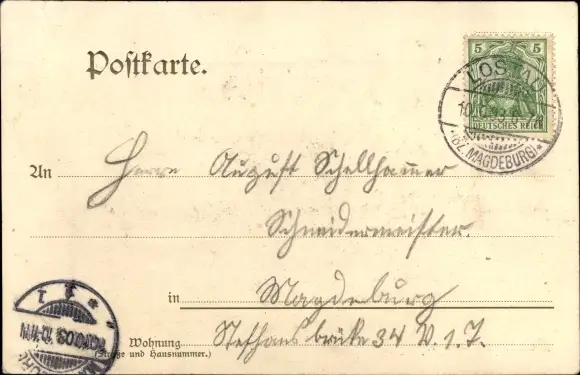 Postkarte.
5 5
DEUTSCHES REICH
LOSTAU
(BZ. MAGDEBURG)
An Herrn August Schellhammer
Schneidermeister.
in Magdeburg
Wohnung
(Straße und Hausnummer.)
Stephansbrücke 34